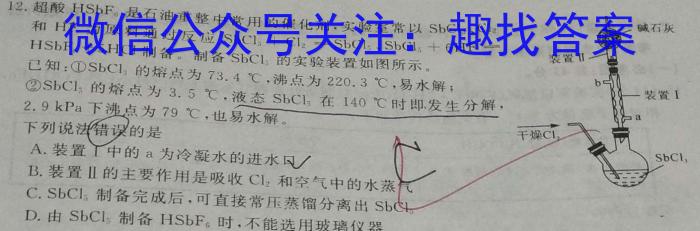 12. 超酸 HSbF₆ 是石油重整中常用的催化剂,实验室常以 SbC
微信公众号关注:趣找答案
HSbF
制备 SbCl₅ 的实验装置如图所示。
已知:①SbCl₃ 的熔点为 73.4 ℃,沸点为 220.3 ℃,易水解;
②SbCl₅ 的熔点为 3.5 ℃,液态 SbCl₅ 在 140 ℃时即发生分解,
2.9 kPa 下沸点为 79 ℃,也易水解。
下列说法错误的是
A. 装置Ⅰ中的 a 为冷凝水的进水口
B. 装置Ⅱ的主要作用是吸收 Cl₂ 和空气中的水蒸气
C. SbCl₅ 制备完成后,可直接常压蒸馏分离出 SbCl₅
D. 由 SbCl₅ 制备 HSbF₆ 时,不能选用玻璃仪器
碱石灰
装置Ⅱ
b
装置Ⅰ
a
干燥Cl₂
SbCl₃